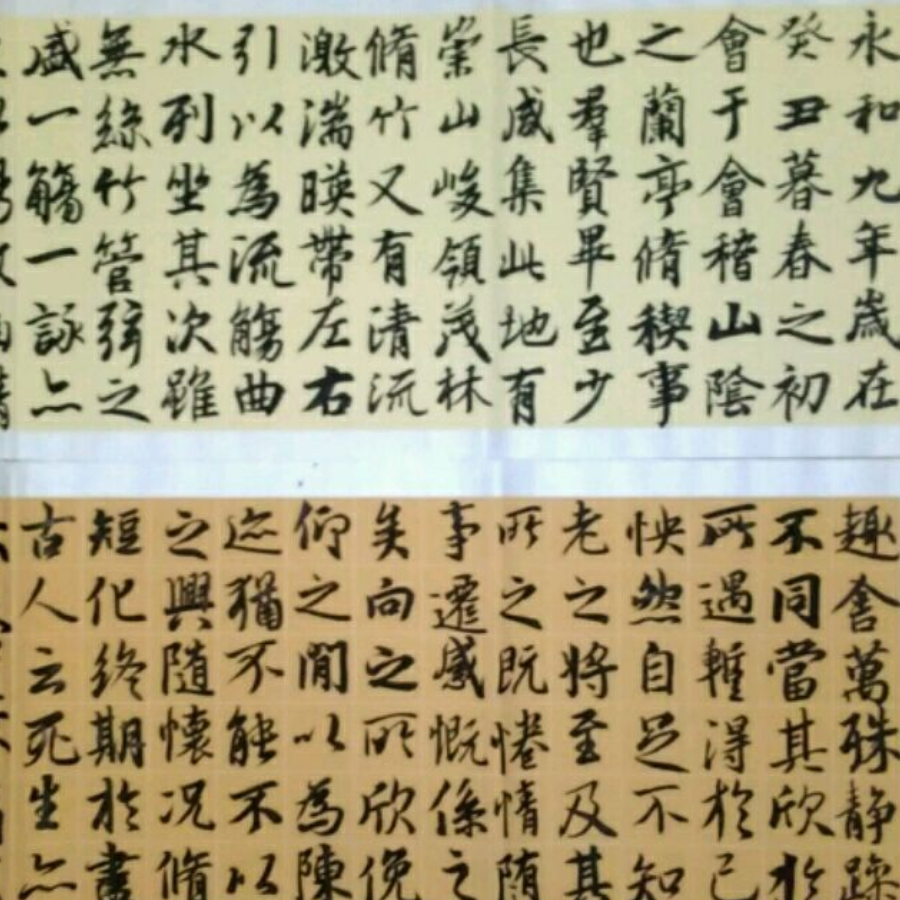 永和九年歲在
癸丑暮春之初
會于會稽山陰
之蘭亭脩稧事
也羣賢畢至少
長咸集此地有
崇山峻領茂林
脩竹又有清流
激湍暎帶左右
引以為流觴曲
水列坐其次雖
無絲竹管弦之
盛一觴一詠亦
趣舍萬殊静躁
不同當其欣於
所遇蹔得於己
怏然自足不知
老之將至及其
所之既惓情随
事遷感慨係之
矣向之所欣俛
仰之閒以為陳
迹猶不能不以
之興随懷况脩
短化終期於盡
古人云死生亦